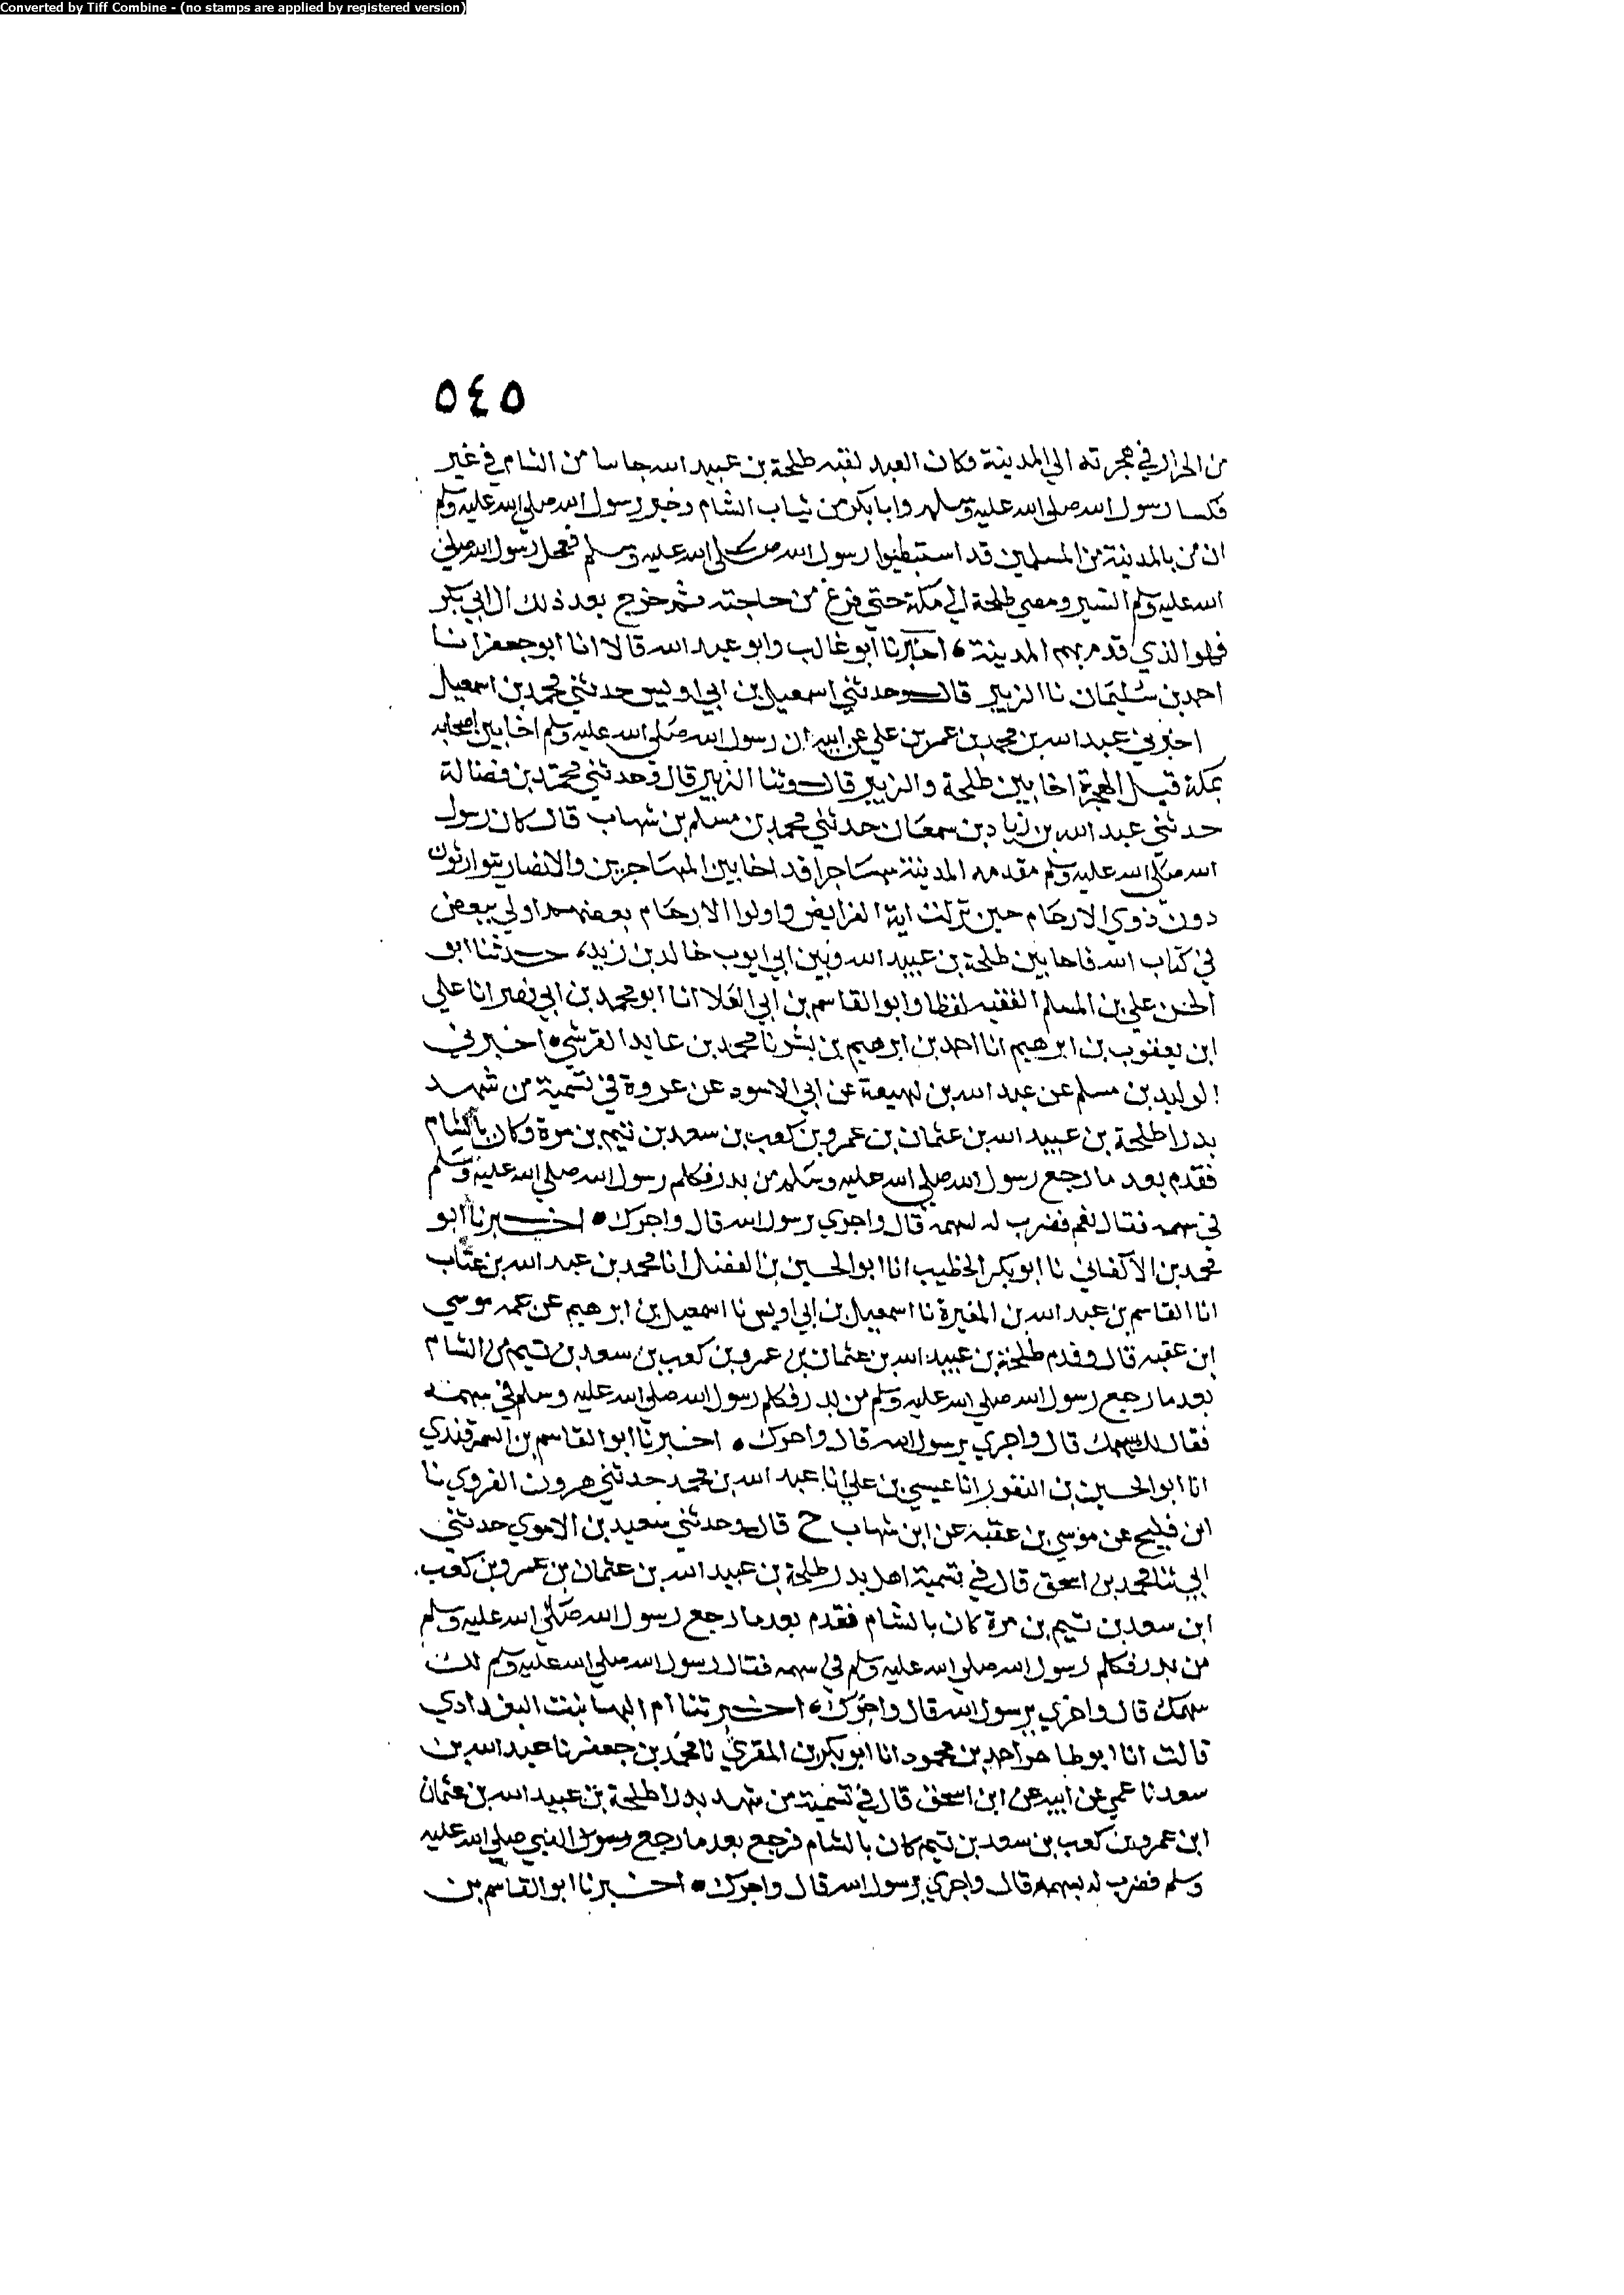 Converted by Tiff Combine - (no stamps are applied by registered version)
٥٤٥
من الخرار في هجرته الي المدينة وكان الغد لقيه طلحة بن عبيد الله جاسا من الشام في عير
فكسا رسول الله صلي الله عليه وسلم وابا بكر من ثياب الشام وخبر رسول الله صلي الله عليه وسلم
ان من بالمدينة من المسلمين قد استبطيوا رسول الله صلي الله عليه وسلم فعجل رسول الله صلي
الله عليه وسلم السير ومضي طلحة الي مكة حتي فرغ من حاجته ثم خرج بعد ذلك ال ابي بكر
فهو الذي قدم بهم المدينة • اخبرنا ابو غالب وابو عبد الله قالا انا ابو جعفر انا
احمد بن سليمان نا الزبير قال وحدثني اسمعيل بن ابي اويس حدثني محمد بن اسمعيل
اخبرني عبد الله بن محمد بن عمر بن علي عن ابيه ان رسول الله صلي الله عليه وسلم اخا بين اصحابه
بمكة قبل الهجرة اخا بين طلحة والزبير قال وثنا الزبير قال وحدثني محمد بن فضالة
حدثني عبد الله بن زياد بن سمعان حدثني محمد بن مسلم بن شهاب قال كان رسول
الله صلي الله عليه وسلم مقدمه المدينة مهاجرا قد اخا بين المهاجرين والانصار يتوارثون
دون ذوي الارحام حين نزلت اية الفرايض واولوا الارحام بعضهم اولي ببعض
في كتاب الله فاخا بين طلحة بن عبيد الله وبين ابي ايوب خالد بن زيد، حدثنا ابو
الحسن علي بن المسلم الفقيه لفظا وابو القاسم بن ابي العلا انا ابو محمد بن ابي نصر انا علي
ابن يعقوب بن ابرهيم انا احمد بن ابرهيم بن بشر نا محمد بن عايد القرشي اخبرني
الوليد بن مسلم عن عبد الله بن لهيعة عن ابي الاسود عن عروة في تسمية من شهد
بدرا طلحة بن عبيد الله بن عثمان بن عمرو بن كعب بن سعد بن تيم بن مرة وكان بالشام
فقدم بعد ما رجع رسول الله صلي الله عليه وسلم من بدر فكلم رسول الله صلي الله عليه وسلم
في سهمه فقال نعم فضرب له بسهمه قال واجري يرسول الله قال واجرك • اخبرنا ابو
محمد بن الاكفاني نا ابو بكر الخطيب انا ابو الحسين بن الفضل انا محمد بن عبد الله بن عتاب
انا القاسم بن عبد الله بن المغيرة نا اسمعيل بن ابي اويس نا اسمعيل بن ابرهيم عن عمه موسي
ابن عقبه قال وقدم طلحة بن عبيد الله بن عثمان بن عمرو بن كعب بن سعد بن تيم من الشام
بعد ما رجع رسول الله صلي الله عليه وسلم من بدر فكلم رسول الله صلي الله عليه وسلم في سهمه
فقال لك سهمك قال واجري يرسول الله قال واجرك • اخبرنا ابو القاسم بن السمرقندي
انا ابو الحسين بن النقور انا عيسي بن علي انا عبد الله بن محمد حدثني هرون الفروي نا
ابن فليح عن موسي بن عقبة عن ابن شهاب ح قال وحدثني سعيد بن الاموي حدثني
ابي ثنا محمد بن اسحق قال في تسمية اهل بدر طلحة بن عبيد الله بن عثمان بن عمرو بن كعب
ابن سعد بن تيم بن مرة كان بالشام فقدم بعد ما رجع رسول الله صلي الله عليه وسلم
من بدر فكلم رسول الله صلي الله عليه وسلم في سهمه فقال رسول الله صلي الله عليه وسلم لك
سهمك قال واجري يرسول الله قال واجرك • اخبرتنا ام البها بنت البغدادي
قالت انا ابو طاهر احمد بن محمود انا ابو بكر بن المقري نا محمد بن جعفر نا عبيد الله بن
سعد نا عمي عن ابيه عن ابن اسحق قال في تسمية من شهد بدرا طلحة بن عبيد الله بن عثمان
ابن عمرو بن كعب بن سعد بن تيم كان بالشام فرجع بعد ما رجع رسول النبي صلي الله عليه
وسلم فضرب له بسهمه قال واجري يرسول الله قال واجرك • اخبرنا ابو القاسم بن